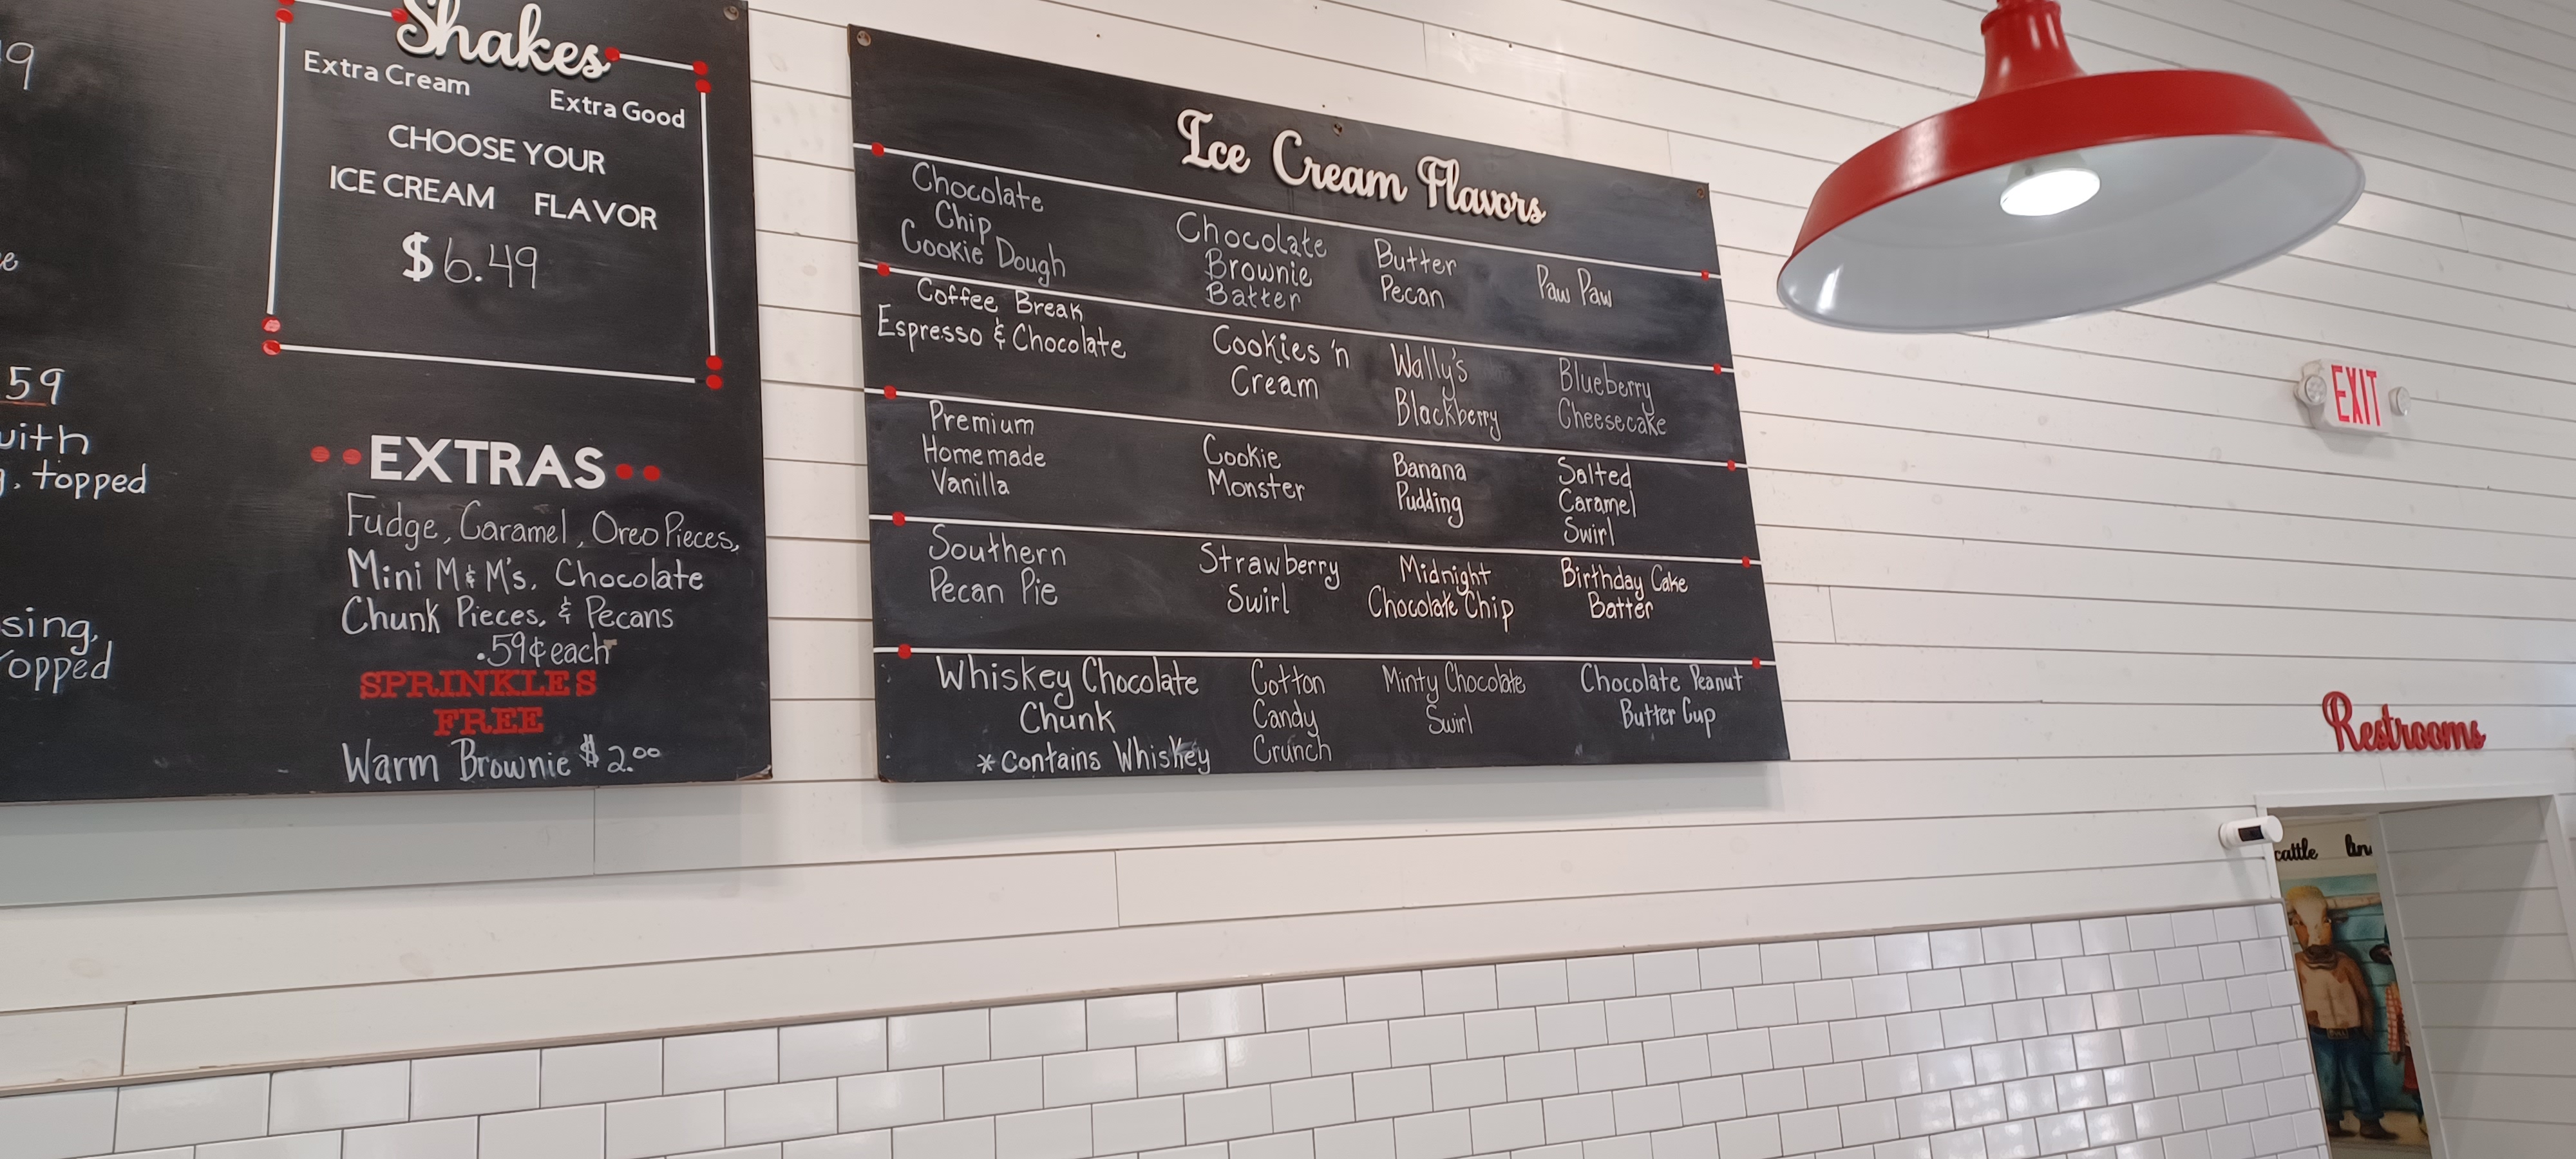 9
e
59
with
, topped
sing,
opped
Shakes
Extra Cream
Extra Good
CHOOSE YOUR
ICE CREAM FLAVOR
$6.49
EXTRAS
Fudge, Caramel, Oreo Pieces,
Mini M&M's, Chocolate
Chunk Pieces, & Pecans
.59¢ each
SPRINKLES
FREE
Warm Brownie $2.00
Ice Cream Flavors
Chocolate
Chip
Cookie Dough
Chocolate
Brownie
Batter
Butter
Pecan
Paw Paw
Coffee Break
Espresso & Chocolate
Cookies 'n
Cream
Wally's
Blackberry
Blueberry
Cheesecake
Premium
Homemade
Vanilla
Cookie
Monster
Banana
Pudding
Salted
Caramel
Swirl
Southern
Pecan Pie
Strawberry
Swirl
Midnight
Chocolate Chip
Birthday Cake
Batter
Whiskey Chocolate
Chunk
*Contains Whiskey
Cotton
Candy
Crunch
Minty Chocolate
Swirl
Chocolate Peanut
Butter Cup
EXIT
Restrooms
cattle